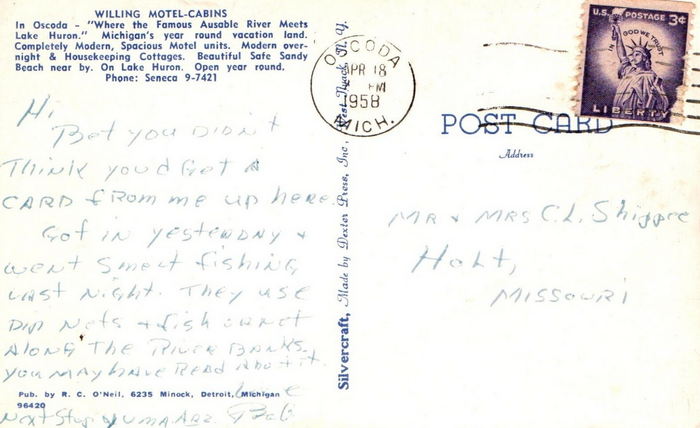 WILLING MOTEL-CABINS
In Oscoda - "Where the Famous Ausable River Meets
Lake Huron." Michigan's year round vacation land.
Completely Modern, Spacious Motel units. Modern over-
night & Housekeeping Cottages. Beautiful Safe Sandy
Beach near by. On Lake Huron. Open year round.
Phone: Seneca 9-7421
Hi,
Bet you Didn't
Think you'd Get A
CARD from me up here.
Got in yesterday &
went Smelt fishing
Last Night. They use
Dip Nets & fish
Along The River Banks.
You may have Read About it.
Love
Next Stop Yuma Arz.
Pub. by R. C. O'Neil, 6235 Minock, Detroit, Michigan
96420
Silvercraft, Made by Dexter Press, Inc., West Nyack, N. Y.
OSCODA
APR 18
PM
1958
MICH.
U.S. POSTAGE 3¢
IN GOD WE TRUST
LIBERTY
POST CARD
Address
MR & MRS C.L. Shippee
Holt,
Missouri